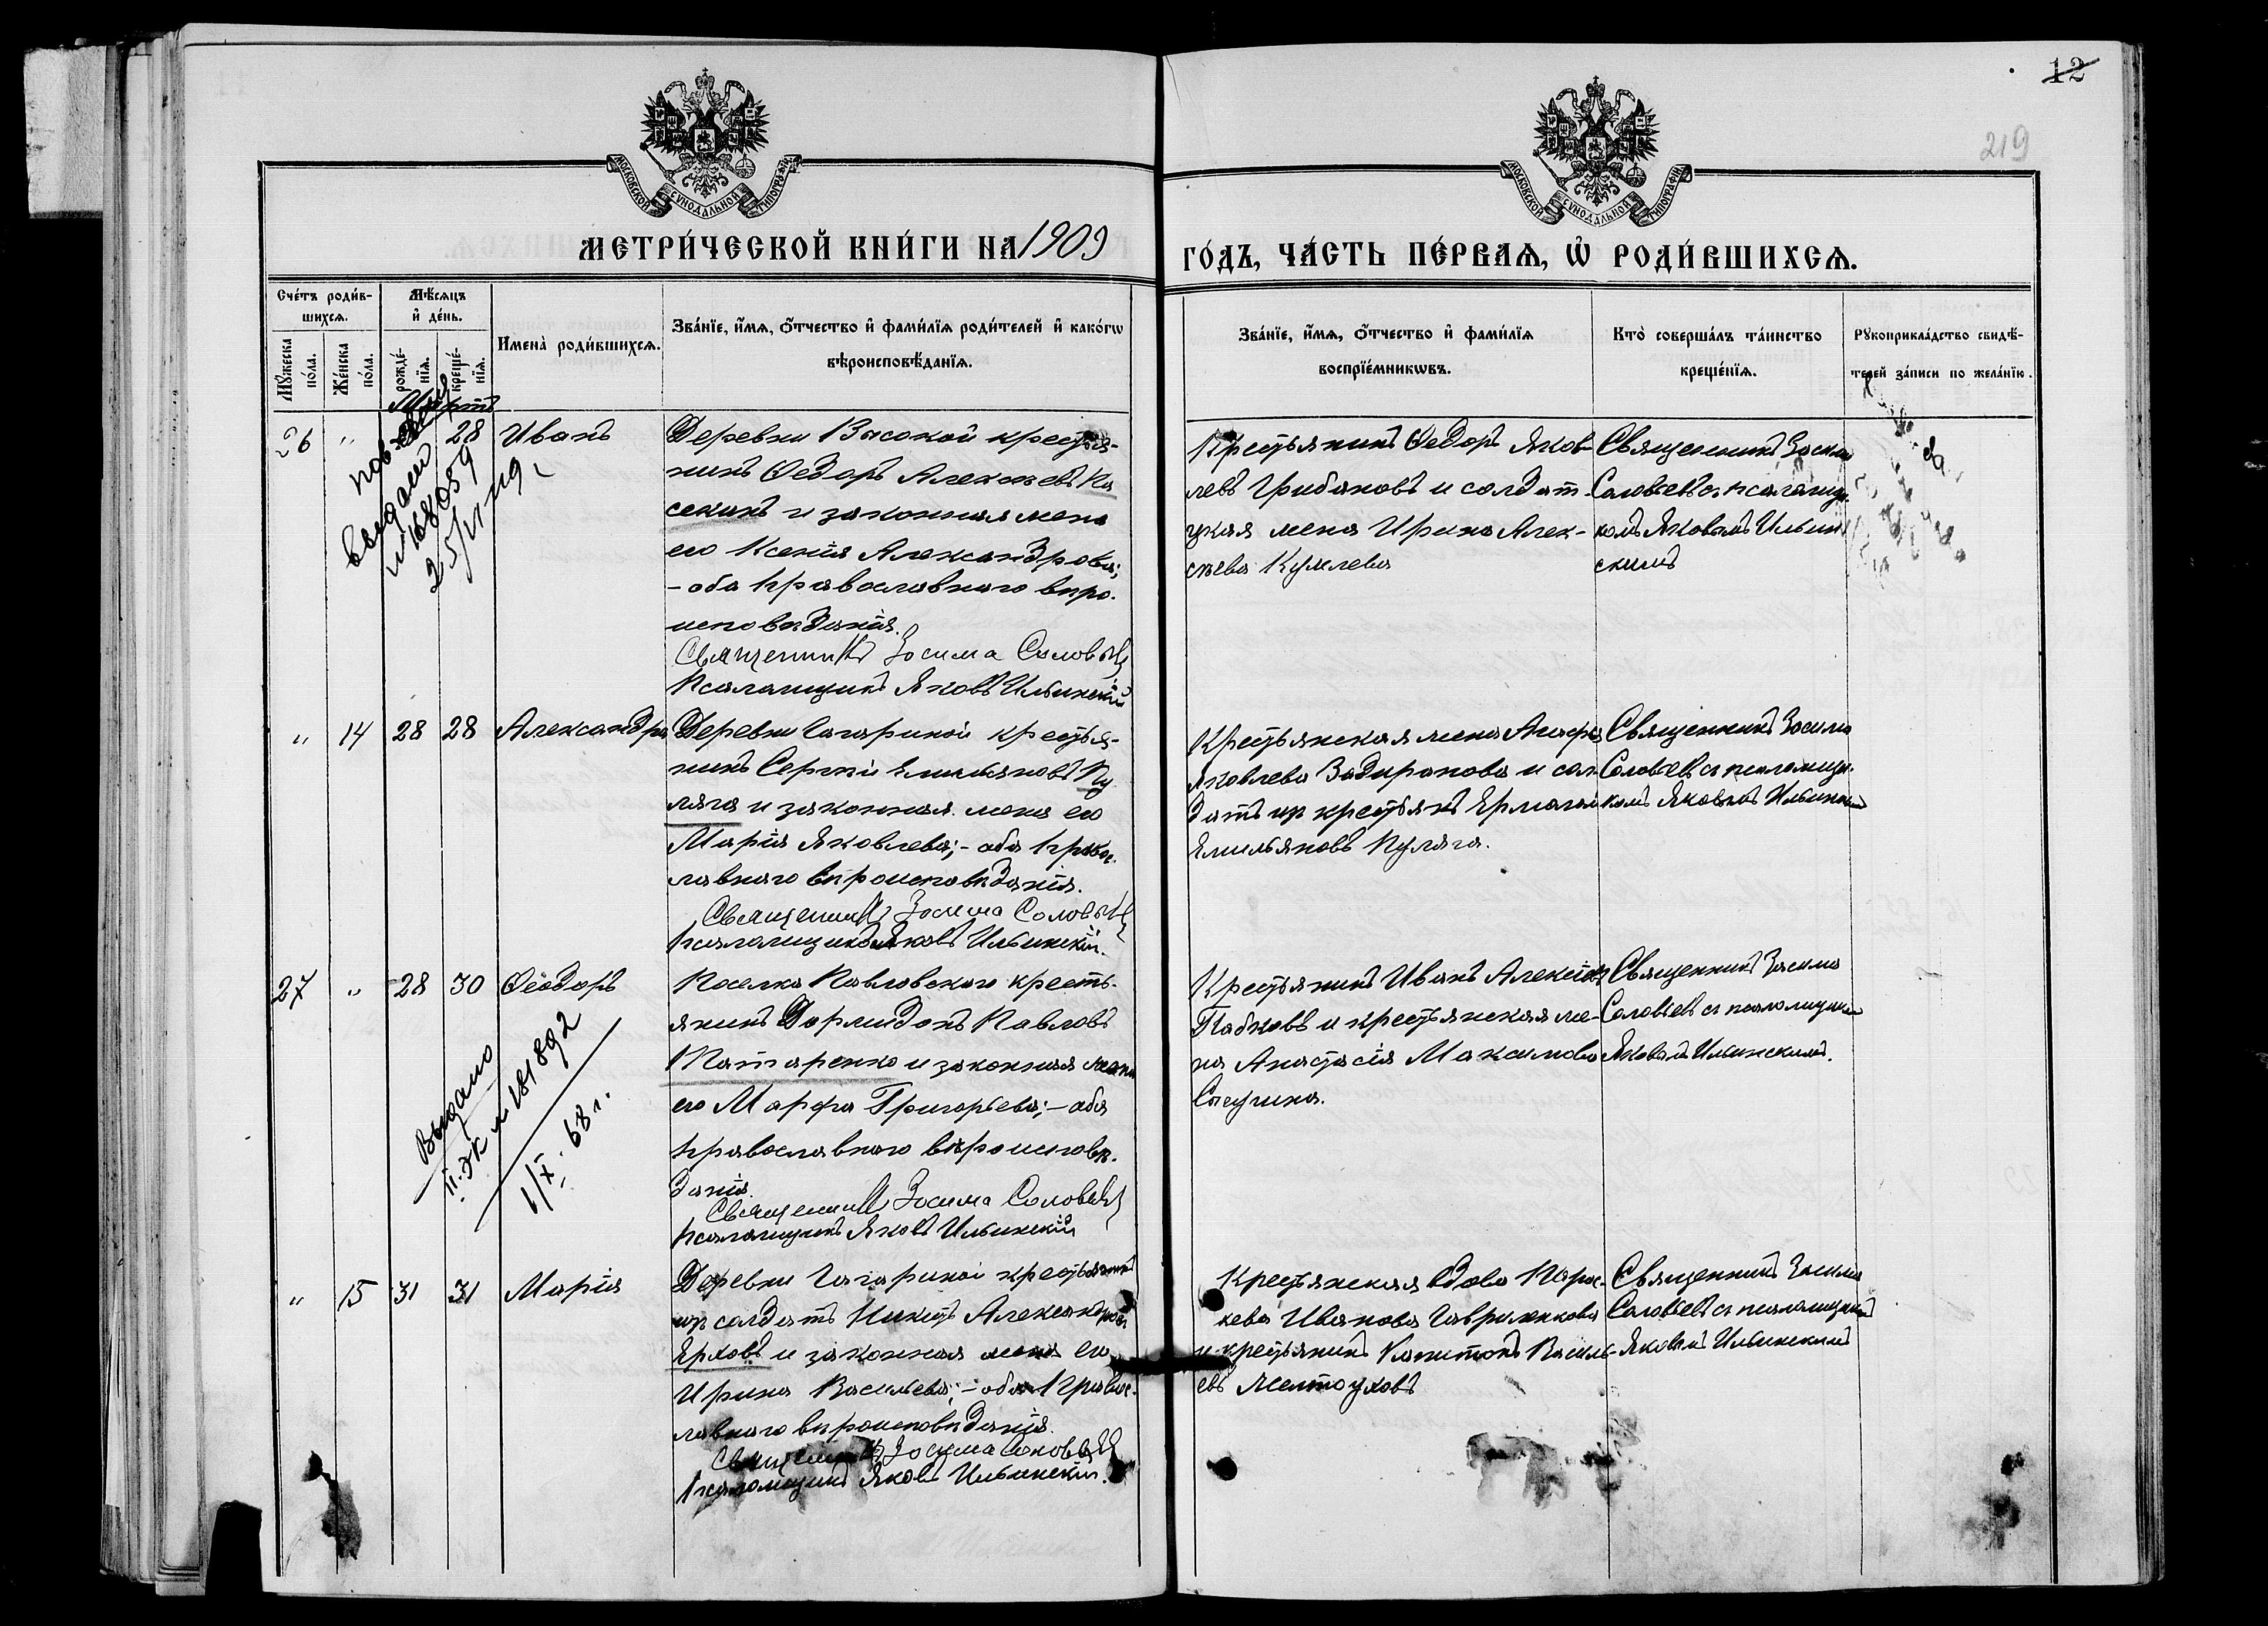 12
219
МОСКОВСКОЙ СѴНОДАЛЬНОЙ ТИПОГРАФІИ
МОСКОВСКОЙ СѴНОДАЛЬНОЙ ТИПОГРАФІИ
МЕТРИ́ЧЕСКОЙ КНИ́ГИ НА 1909
ГО́ДЪ, ЧА́СТЬ ПЕ́РВАѦ, Ѡ҆ РОДИ́ВШИХСѦ.
Сче́тъ роди́в-
шихсѧ.
Мꙋ́жеска по́ла.
Же́нска по́ла.
Мѣ́сѧцъ
и҆ де́нь.
рожде́-нїѧ.
креще́-нїѧ.
Имена̀ роди́вшихсѧ.
Зва́нїе, и҆́мѧ, ѻ҆́тчество и҆ фами́лїѧ роди́телей и҆ како́гѡ
вѣроисповѣ́данїѧ.
Зва́нїе, и҆́мѧ, ѻ҆́тчество и҆ фами́лїѧ
воспрїе́мникѡвъ.
Кто̀ соверша́лъ та́инство
креще́нїѧ.
Рꙋкоприкла́дство свидѣ́-
телей за́писи по жела́нїю.
Мартъ
26 " 28 Иванъ
выдано
№ 168059
Деревни Высокой крестья-
нинъ Ѳедоръ Алексѣевъ Ка
секинъ и законная жена
его Ксенія Александрова;
- оба православнаго вѣро-
исповѣданія.
Священникъ Зосима Соловьевъ
Псаломщикъ Яковъ Ильинскій
Крестьянинъ Ѳедоръ Яков-
левъ Грибановъ и солдат-
ская жена Ирина Алек-
сѣева
Священникъ Зосима
Соловьевъ съ псаломщи-
комъ Яковомъ Ильин-
скимъ
" 14 28 28 Александра
Деревни Гагариной крестья-
нинъ Сергій Емельяновъ Пу
ляга и законная жена его
Марія Яковлева; - оба правос-
лавнаго вѣроисповѣданія.
Священникъ Зосима Соловьевъ
Псаломщикъ Яковъ Ильинскій.
Крестьянская жена
Яковлева Задиранова и сол
датъ изъ крестьянъ
Емельяновъ Пуляга.
Священникъ Зосима
Соловьевъ съ псаломщи-
комъ Яковомъ Ильинскимъ
27 " 28 30 Ѳеодоръ
Выдано
II. ЭК № 181892
1/X. 68 г.
Поселка Павловскаго кресть-
янинъ Дормидонъ Павловъ
Патаренко и законная жена
его Марфа Григорьева; - оба
православнаго вѣроисповѣ-
данія.
Священникъ Зосима Соловьевъ
Псаломщикъ Яковъ Ильинскій
Крестьянинъ Иванъ Алексѣевъ
Бабковъ и крестьянская же-
на Анастасія Максимова
Священникъ Зосима
Соловьевъ съ псаломщикомъ
Яковомъ Ильинскимъ.
" 15 31 31 Марія
Деревни Гагариной крестьянинъ
изъ солдатъ Никита Александровъ
Ерховъ и законная жена его
Ирина Васильева; - оба правос-
лавнаго вѣроисповѣданія.
Священникъ Зосима Соловьевъ
Псаломщикъ Яковъ Ильинскій.
Крестьянская вдова Парас-
кева Иванова Гавриленкова
и крестьянинъ Капитонъ Василь-
евъ Желтоуховъ
Священникъ Зосима
Соловьевъ съ псаломщикомъ
Яковомъ Ильинскимъ